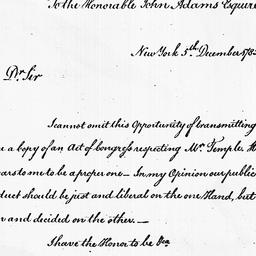 To the Honorable John Adams Esquire
New York 5th December 178
Dr. Sir
I cannot omit this Opportunity of transmitting
a copy of an Act of Congress respecting Mr. Temple.
to me to be a proper one — In my Opinion our public
should be just and liberal on the one Hand, but
and decided on the other. —
I have the Honor to be &ca